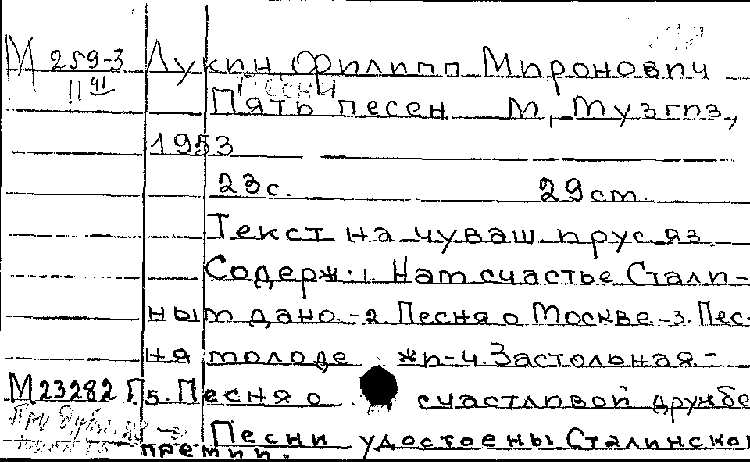 М 259-3 Лукин Филипп Миронович
II 41 Песни
Пять песен М., Музгиз,
1953
23с. 29ст.
Текст на чуваш. и рус. яз.
Содерж: 1. Нам счастье Стали-
ным дано.-2. Песня о Москве.-3. Пес-
ня молоде жи-4. Застольная.-
М23282 Гр. 5. Песня о счастливой дружбе
Песни удостоены Сталинской
премии.